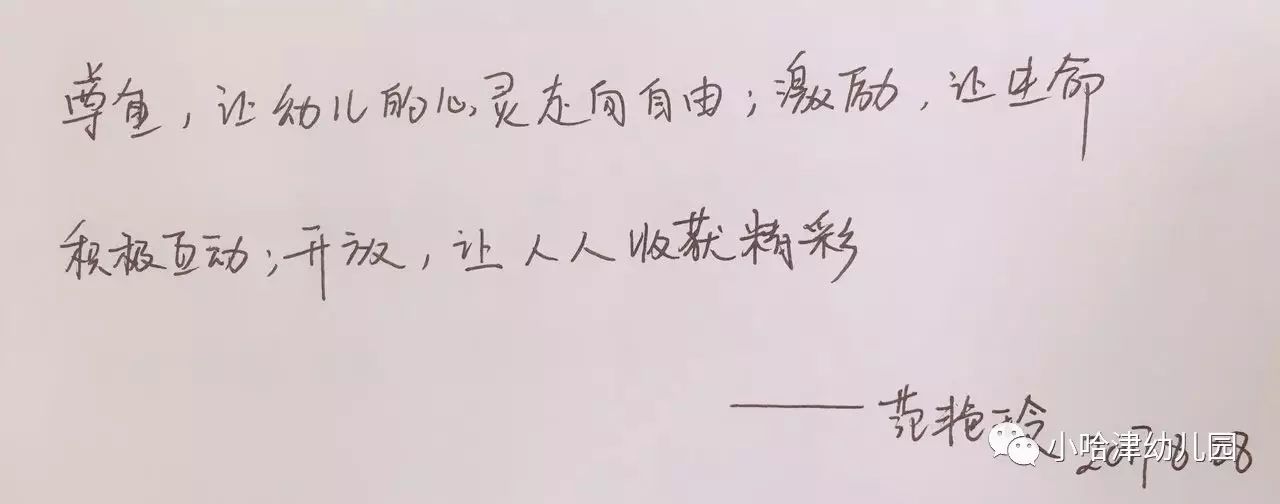 尊重，让幼儿的心灵走向自由；激励，让生命
积极互动；开放，让人人收获精彩
——范艳玲
小哈津幼儿园
2017.8.28